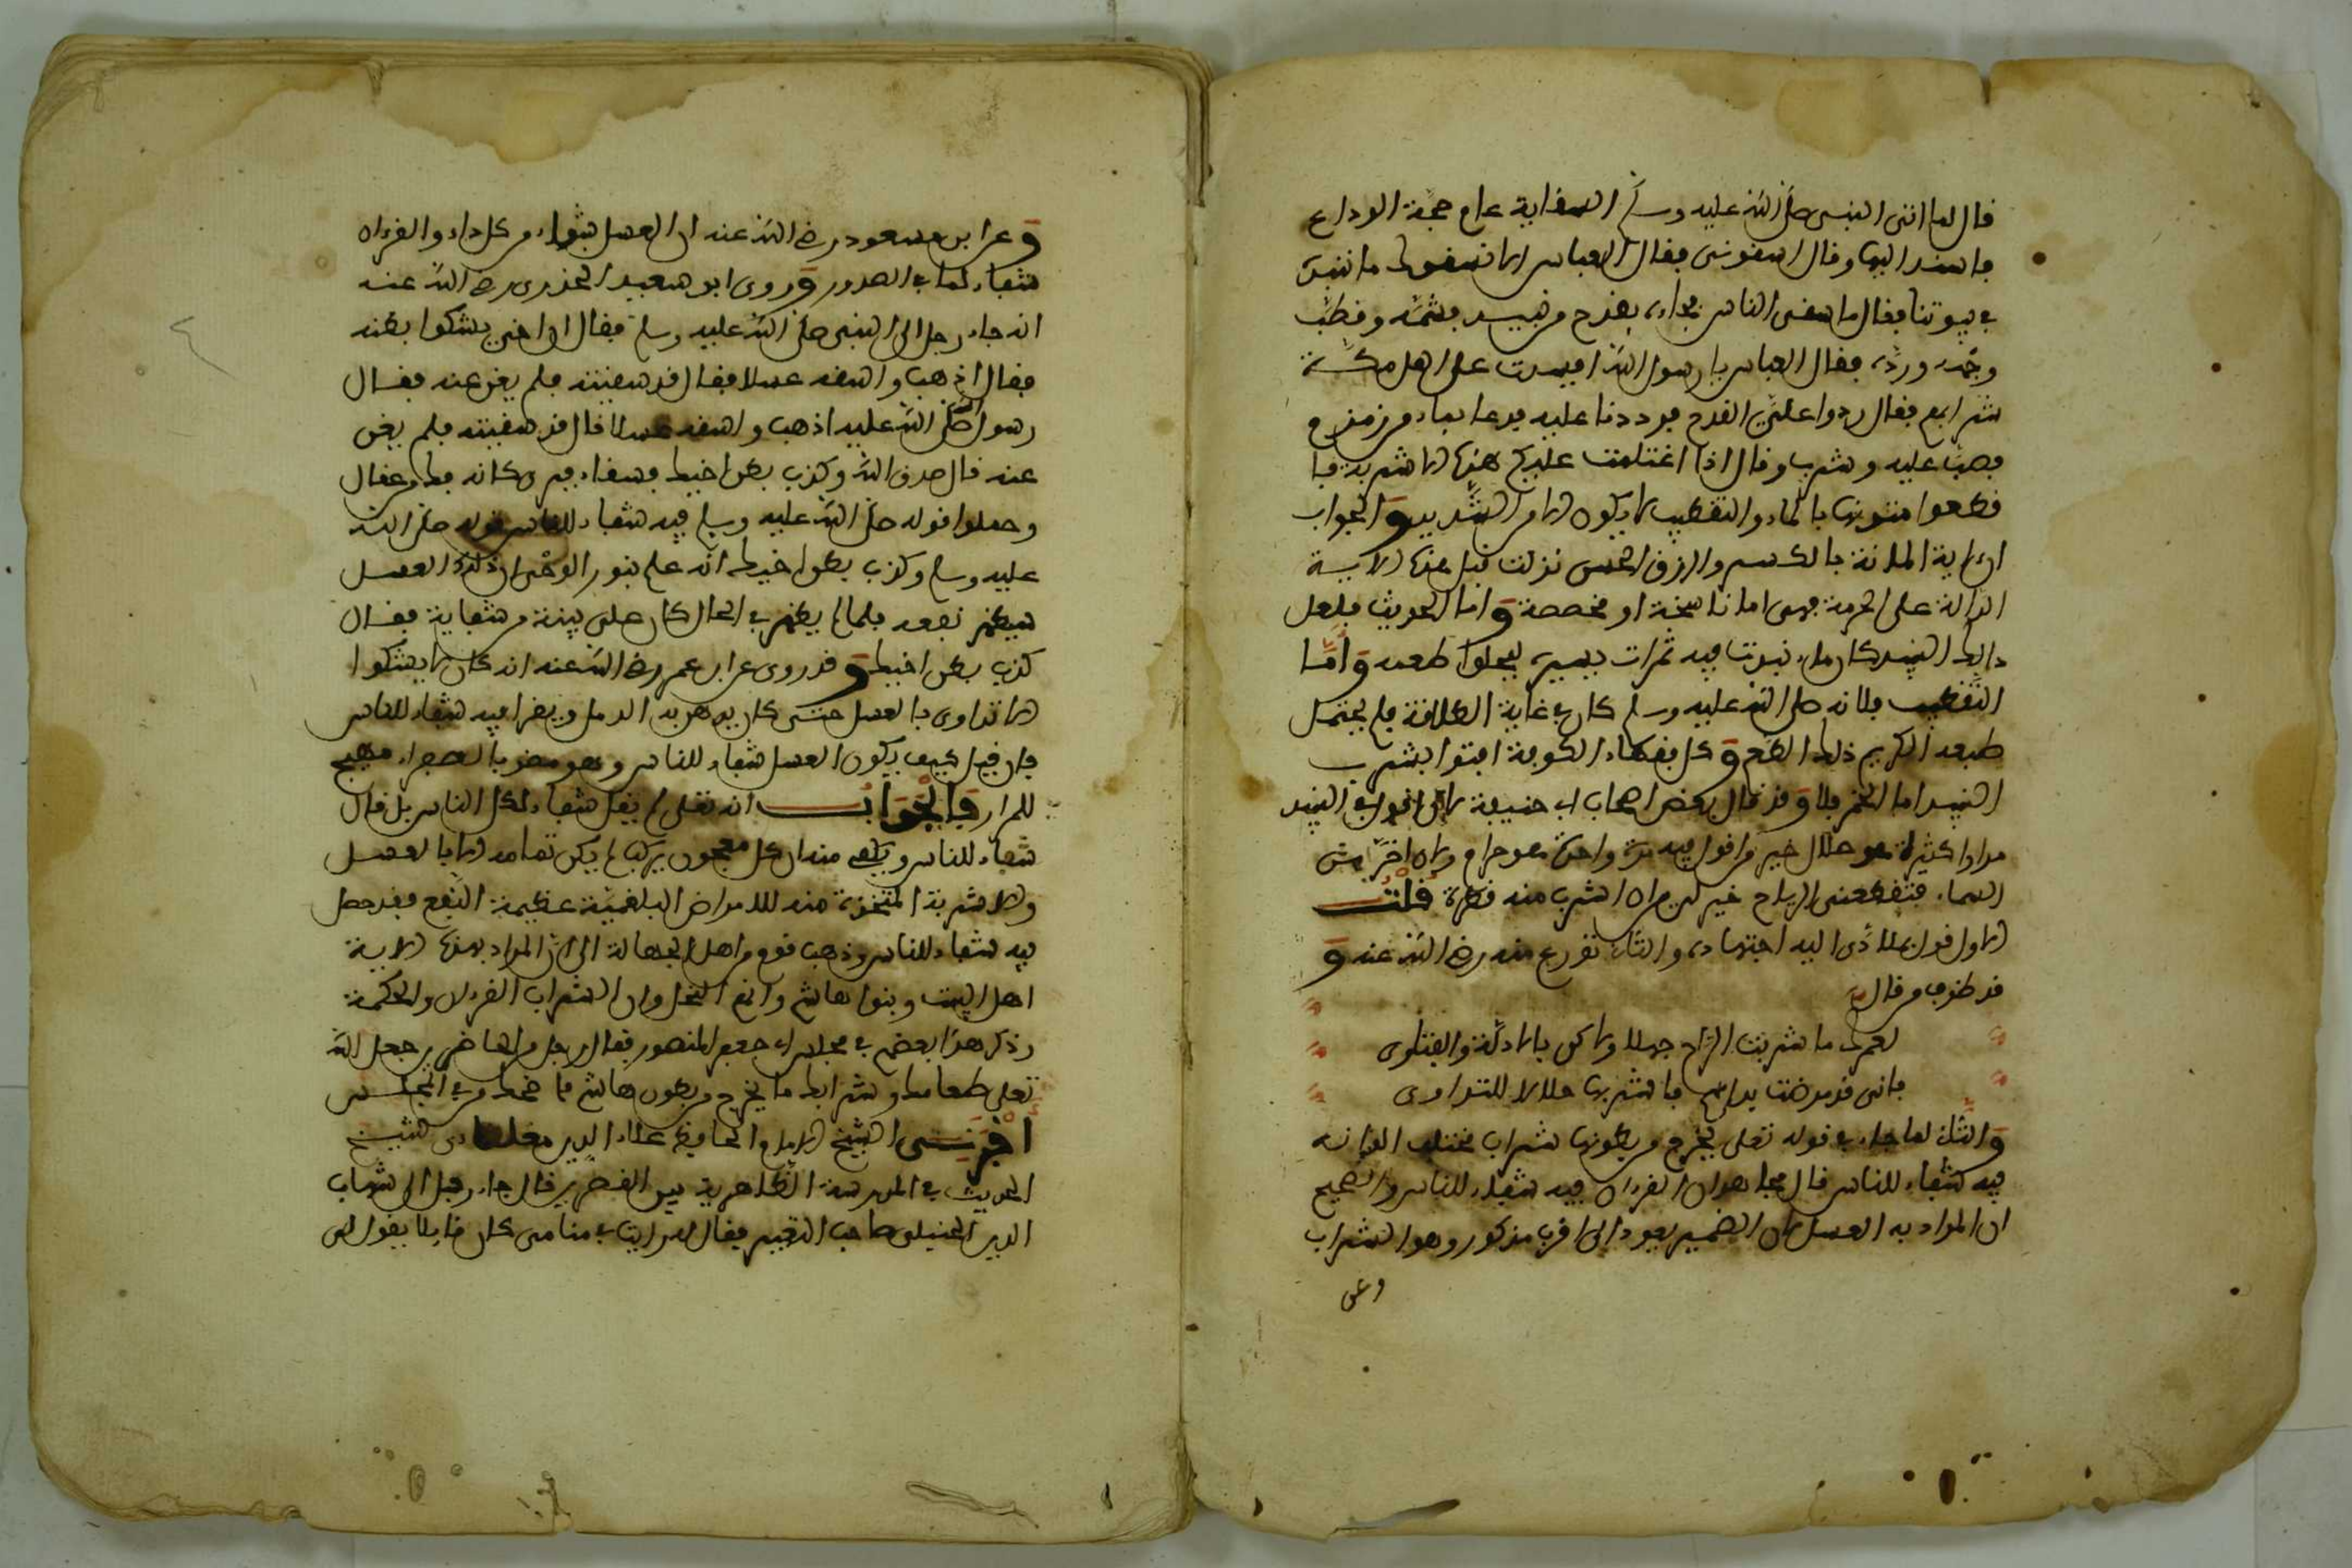 قال لما اتى النبى صلى الله عليه وسلم السقاية عام حجة الوداع
فاستند اليها وقال اسقونى فقال العباس الا نسقيك ما ننبذ
فى بيوتنا فقال ما تسقى الناس فجاءه بقدح من نبيذ فشمه وقطب
وجهه ورده فقال العباس يا رسول الله افسدت على اهل مكة
شرابهم فقال ردوا علىّ القدح فرددنا عليه فدعا بماء من زمزم
فصب عليه وشرب وقال اذا اغتلمت عليكم هذه الاشربة فا
قطعوا متونها بالماء والتقطيب لا يكون الا من الشديد والجواب
ان الاية الملانة بالكسر والرزق الحسن نزلت قبل هذه الاية
الدالة على الحرمة فهى اما ناسخة او مخصصة واما الحديث فلعل
ذلك النبيذ كان ماء نبذت فيه تمرات يسيرة ليحلوا طعمه واما
التقطيب فلانه صلى الله عليه وسلم كان فى غاية اللطافة فلم يحتمل
طبعه الكريم ذلك الطعم وكل فقهاء الكوفة افتوا بشرب
النبيذ اما الخمر فلا وقد قال بعض اصحاب ابى حنيفة لان اقول فى النبيذ
مرارا كثيرة هو حلال خير من اقول فيه مرة واحدة هو حرام ولان اخرّ من
السماء فتقطعنى الرياح خير لى من ان اشرب منه قطرة قلت
الاول قول بما ادّى اليه اجتهاده والثانى تورع منه رضى الله عنه و
قد ظرف من قال
لعمرك ما شربت الراح جهلا ولاكن بالادلة والفتاوى
فانى قد مرضت بداء فاشربها حلالا للتداوى
والثانى لما جاء فى قوله تعلى يخرج من بطونها شراب مختلف الوانه
فيه شفاء للناس قال مجاهد ان القرءان فيه شفاء للناس والصحيح
ان المراد به العسل لان الضمير يعود الى اقرب مذكور وهو الشراب
وعن
وعن ابن مسعود رضى الله عنه ان العسل شفاء من كل داء والقرءان
شفاء لما فى الصدور وروى ابو سعيد الخدرى رضى الله عنه
انه جاء رجل الى النبى صلى الله عليه وسلم فقال ان اخى يشكوا بطنه
فقال اذهب واسقه عسلا فقال قد سقيته فلم يغن عنه فقال
رسول صلى الله عليه اذهب واسقه عسلا قال قد سقيته فلم يغن
عنه قال صدق الله وكذب بطن اخيك فسقاه فبرى كانه نشط من عقال
وحملوا قوله صلى الله عليه وسلم فيه شفاء للناس قوله صلى الله
عليه وسلم وكذب بطن اخيك انه علم بنور الوحى ان ذلك العسل
سيظهر نفعه فلما لم يظهر فى الحال كان على بينة من شفايه فقال
كذب بطن اخيك وقد روى عن ابن عمر رضى الله عنه انه كان لا يشكوا
الا تداوى بالعسل حتى كان يدهن به الدمل ويقرا فيه شفاء للناس
فان قيل كيف يكون العسل شفاء للناس وهو مضر بالصفراء مهيج
للمرار فالجواب انه تعلى لم يقل شفاء لكل الناس بل قال
شفاء للناس ويكفى منه ان كل معجون يركب لم يكن تمامه الا بالعسل
والاشربة المتخذة منه للامراض البلغمية عظيمة النفع فقد حصل
فيه شفاء للناس وذهب قوم من اهل الجهالة الى ان المراد بهذه الاية
اهل البيت وبنوا هاشم وانهم النحل وان الشراب القرءان والحكمة
وذكر هذا بعضهم فى مجلس ابى جعفر المنصور فقال رجل من الحاضرين جعل الله
تعلى طعامك وشرابك ما يخرج من بطون هاشم فاضحك من فى المجلس
اخبرنى الشيخ الامام الحافظ علاء الدين مغلطاى شيخ
الحديث فى المدرسة الظاهرية بين القصرين قال جاء رجل الى شهاب
الدين الحنبلى صاحب التعبير فقال له رايت فى منامى كان قايلا يقول لى